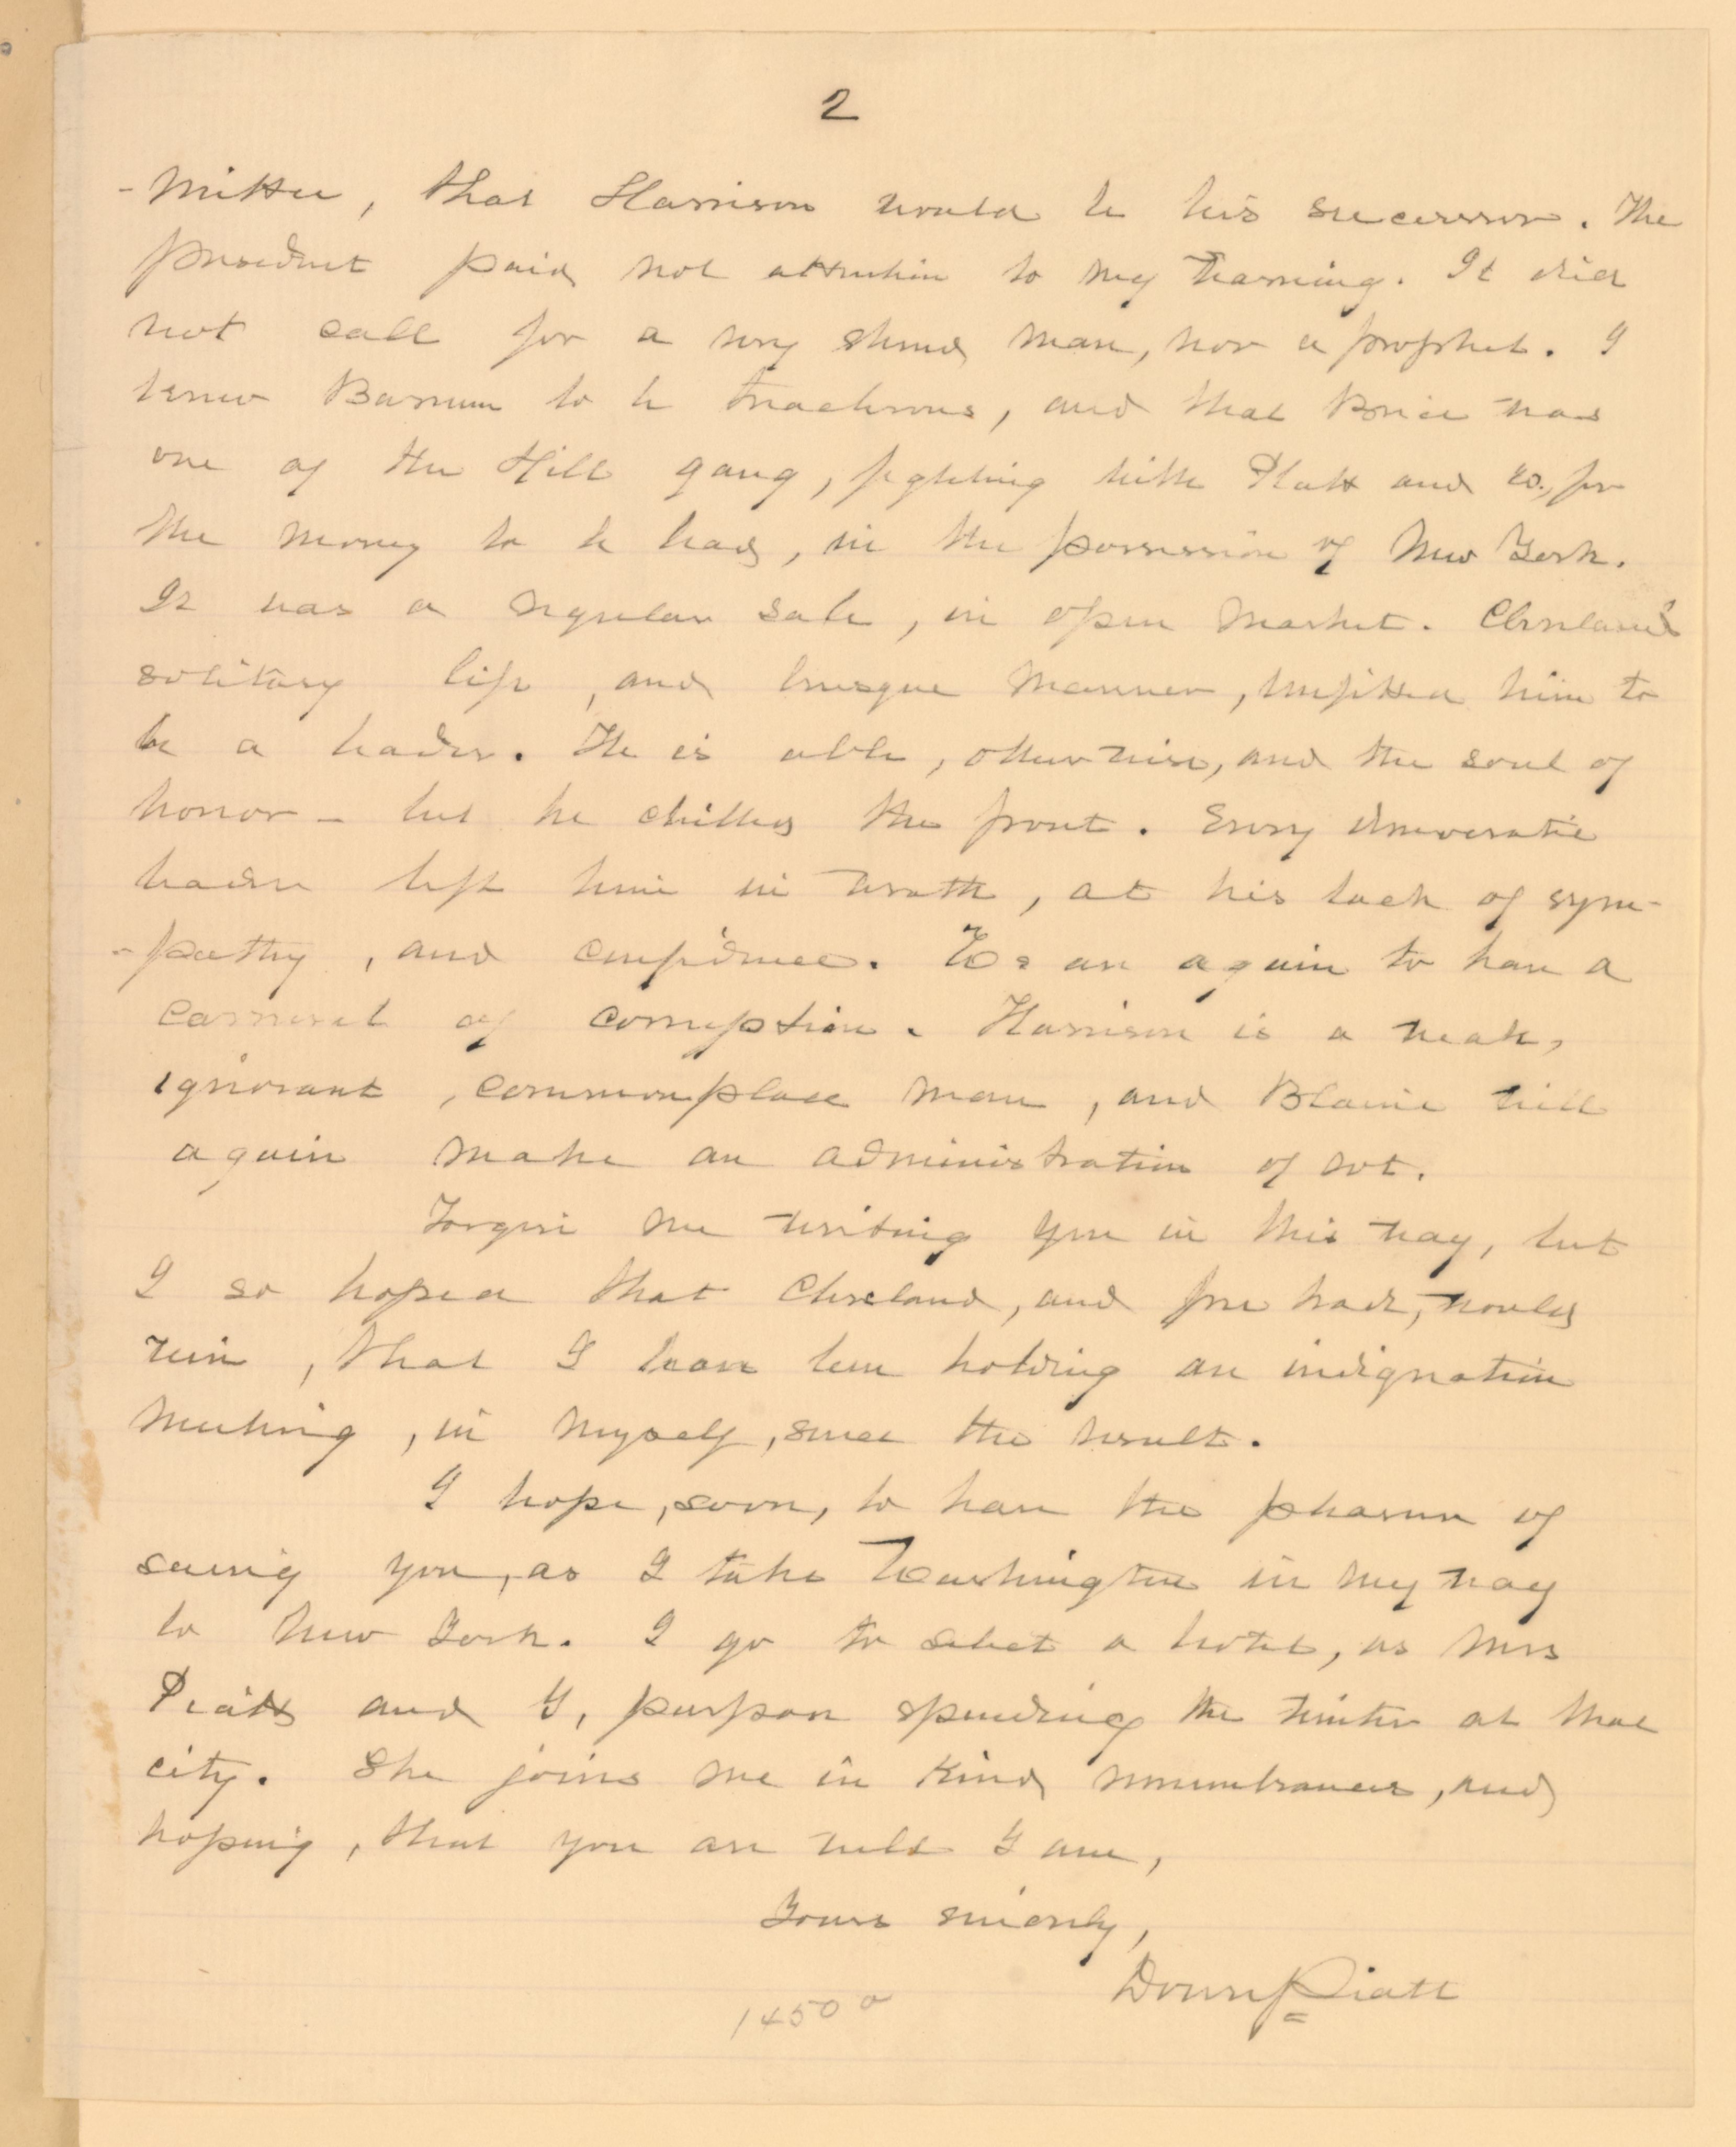 2
-mittee, that Harrison would be his successor. The
president paid not attention to my warning. It did
not call for a very shrewd man, nor a prophet. I
knew Barnum to be treacherous, and that Brice was
one of the Hill gang, fighting with Platt and co., for
the money to be had, in the possession of New York.
It was a regular sale, in open market. Cleveland's
solitary life, and brusque manner, unfitted him to
be a leader. He is able, otherwise, and the soul of
honor - but he chilled the front. Every democratic
leader left him in wrath, at his lack of sym-
-pathy, and confidence. We are again to have a
carnival of corruption. Harrison is a weak,
ignorant, commonplace man, and Blaine will
again make an administration of rot.
Forgive me writing you in this way, but
I so hoped that Cleveland, and free trade, would
win, that I have been holding an indignation
meeting, in myself, since the result.
I hope, soon, to have the pleasure of
seeing you, as I take Washington in my way
to New York. I go to select a hotel, as Mrs
Piatt and I, purpose spending the winter at that
city. She joins me in kind remembrances, and
hoping, that you are well I am,
Yours sincerely,
Donn Piatt
14500